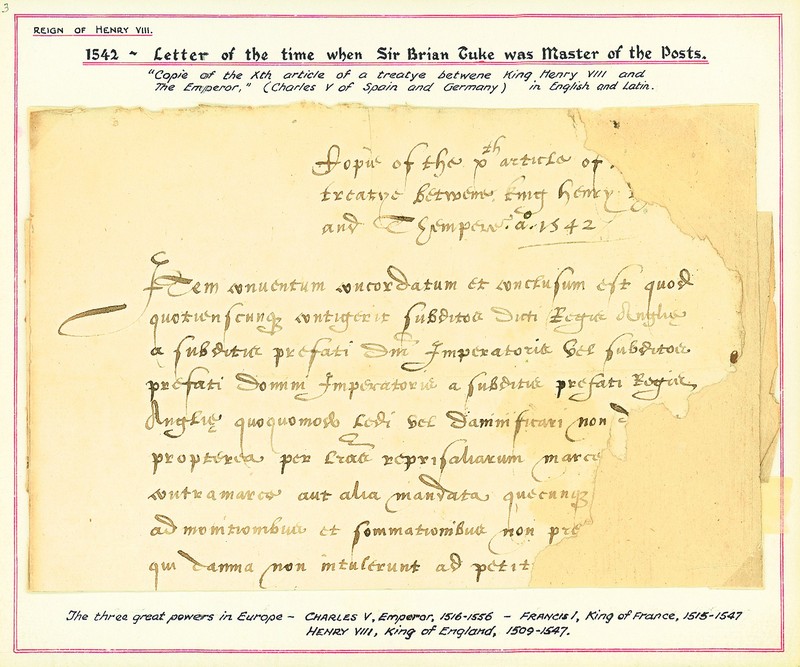 3
REIGN OF HENRY VIII.
1542 ~ Letter of the time when Sir Brian Tuke was Master of the Posts.
"Copie of the Xth article of a treatye betwene King Henry VIII and
The Emperor," (Charles V of Spain and Germany) in English and Latin.
Copie of the xth article of
treatye betwene king Henry
and Themperor ao. 1542
Item conventum concordatum et conclusum est quod
quotienscunq contigerit subditos dicti Regis Anglie
a subditis prefati dni Imperatoris vel subditos
prefati domini Imperatoris a subditis prefati Regis
Anglię quoquomodo ledi vel damnificari non
propterea per lras reprisaliarum marce
contramarce aut alia mandata quecunq
admonitionibus et sommationibus non pre
qui damna non intulerunt ad petit
The three great powers in Europe – CHARLES V, Emperor, 1516-1556 – FRANCIS I, King of France, 1515-1547
HENRY VIII, King of England, 1509-1547.